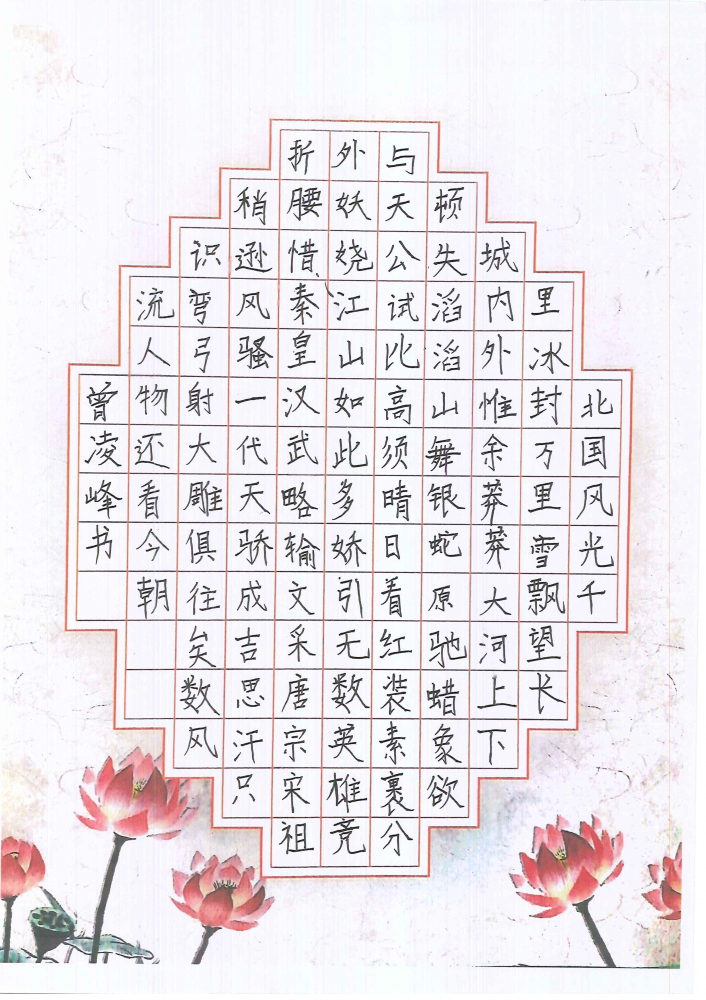 北国风光千
里冰封万里雪飘望长
城内外惟余莽莽大河上下
顿失滔滔山舞银蛇原驰蜡象欲
与天公试比高须晴日看红装素裹分
外妖娆江山如此多娇引无数英雄竞
折腰惜秦皇汉武略输文采唐宗宋祖
稍逊风骚一代天骄成吉思汗只
识弯弓射大雕俱往矣数风
流人物还看今朝
曾凌峰书